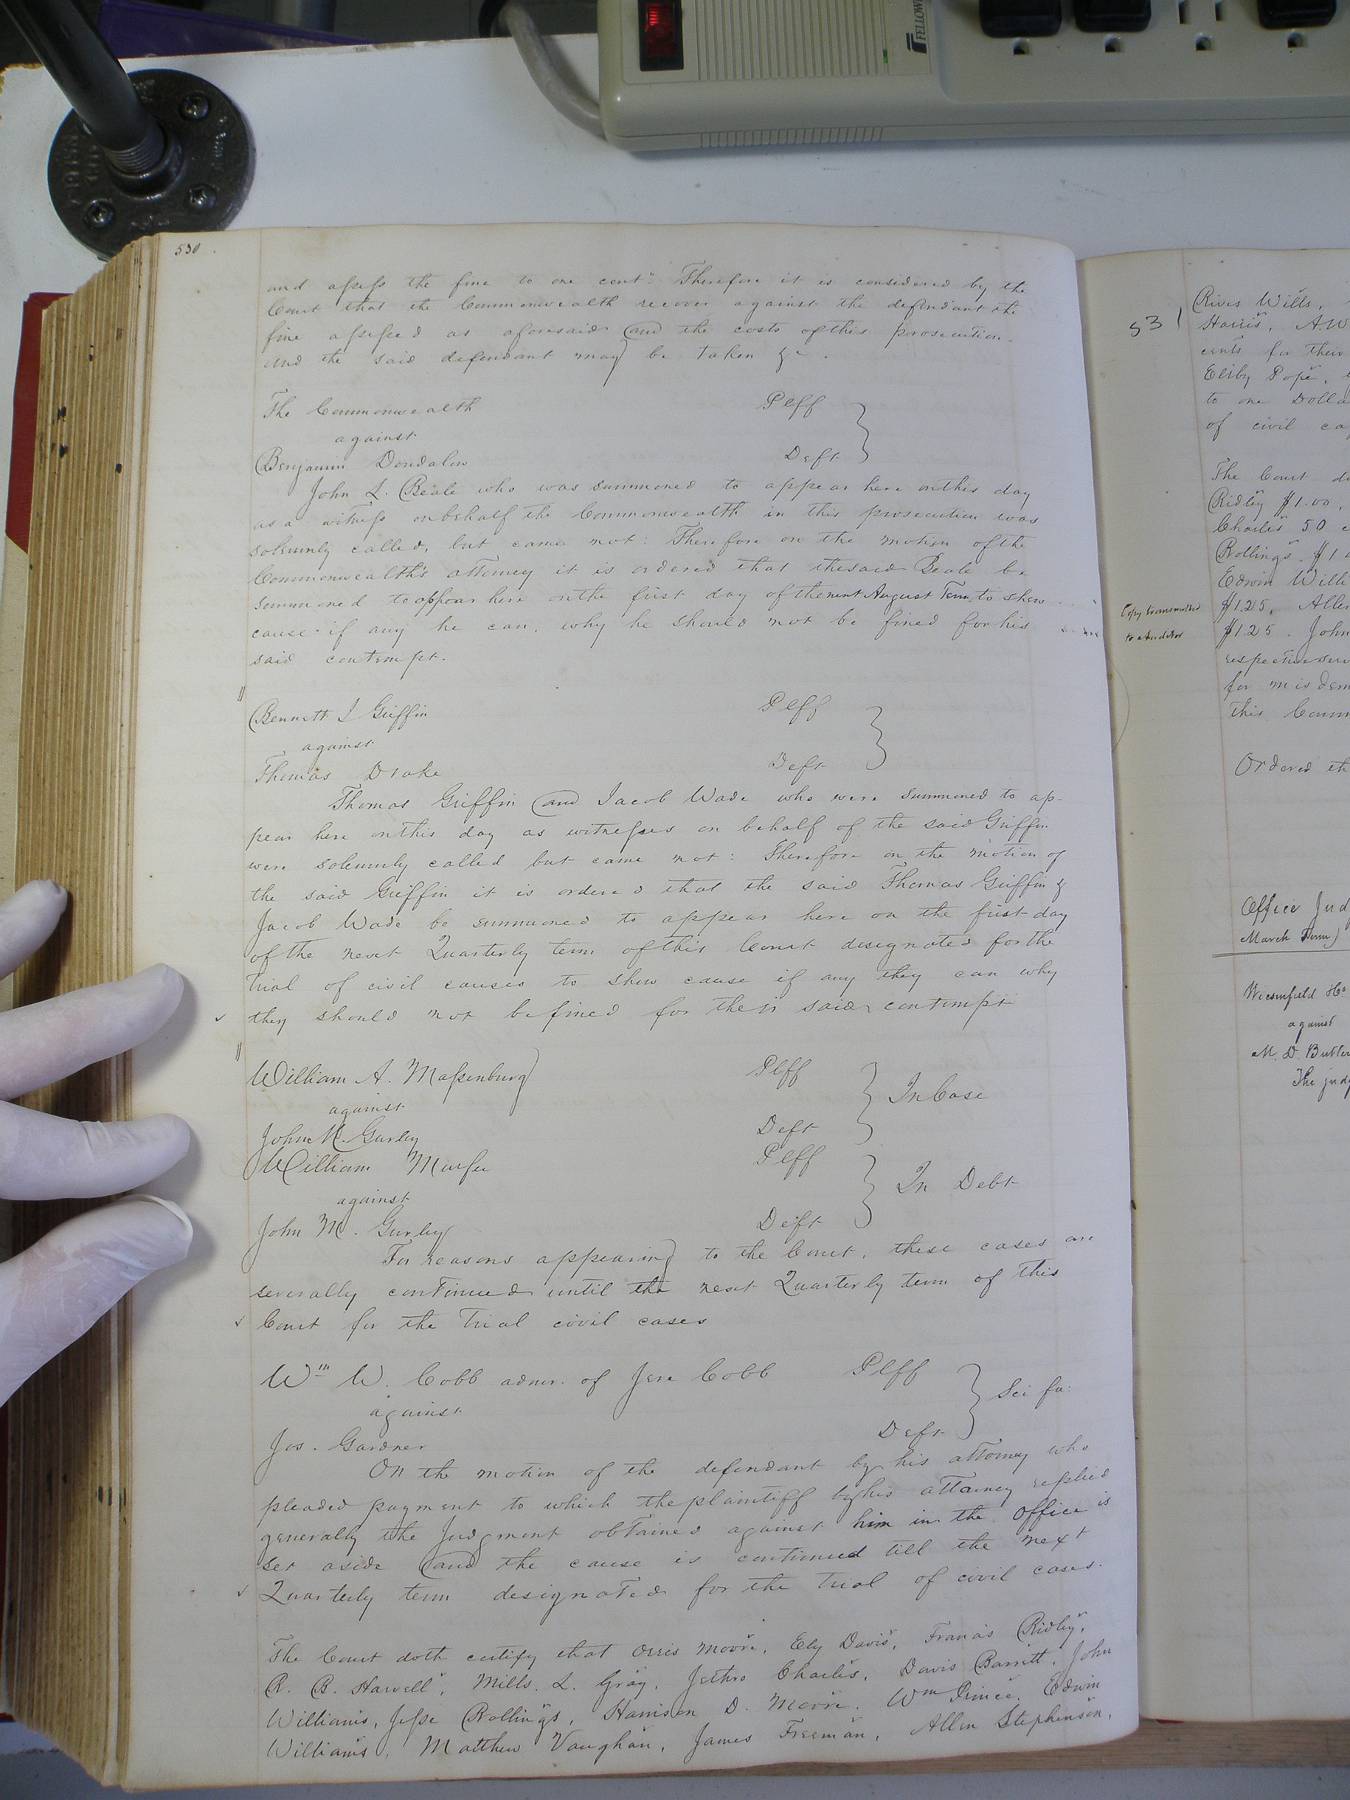 FELLOW
530
and assess the fine to one cent: Therefore it is considered by the
Court that the Commonwealth recover against the defendant the
fine assessed as aforesaid and the costs of this prosecution.
and the said defendant may be taken &c.
The Commonwealth Plff
against
Benjamin Deft
John L. Beale who was summoned to appear here on this day
as a witness on behalf the Commonwealth in this prosecution was
solemnly called, but came not: Therefore on the motion of the
Commonwealth's attorney it is ordered that the said Beale be
summoned to appear here on the first day of the next August Term, to show
cause if any he can, why he should not be fined for his
said contempt.
Bennett J Griffin Plff
against
Thomas Drake Deft
Thomas Griffin and Jacob Wade who were summoned to ap-
pear here on this day as witnesses on behalf of the said Griffin
were solemnly called but came not: Therefore on the motion of
the said Griffin it is ordered that the said Thomas Griffin &
Jacob Wade be summoned to appear here on the first day
of the next Quarterly term of this Court designated for the
trial of civil causes to show cause if any they can why
they should not be fined for their said contempt
William A. Massenburg Plff
against In Case
John M. Gurley Deft
William Plff
against In Debt
John M. Gurley Deft
For reasons appearing to the Court, these cases are
severally continued until the next Quarterly term of this
Court for the Trial civil cases
Wm W. Cobb admr. of Jere Cobb Plff
against Sci fa:
Jos. Gardner Deft
On the motion of the defendant by his attorney who
pleaded payment to which the plaintiff by his attorney replied
generally the Judgment obtained against him in the office is
set aside and the cause is continued till the next
Quarterly term designated for the trial of civil cases.
The Court doth certify that Orris Moore, Ely Davis, Francis Ridley,
R. B. Harwell, Mills. L. Gray, Jethro Charles, Davis Barrett, John
Williams, Jesse Rollings, Harrison D. Moore, Wm Prince, Edwin
Williams, Matthew Vaughan, James Freeman, Allen Stephenson,
531
Rives Wills,
Harris, A W
cents for their
Eliby Pope,
to one Dolla
of civil ca
The Court d
Ridley $1.00,
Charles 50 c
Rollings $1
Edwin Will
$1.25, Allen
Copy transmitted
to Auditor
$1.25. John
respective
for misdem
this Coun
Ordered th
Office Jud
March Term)
against
M. D. Butler
The judg